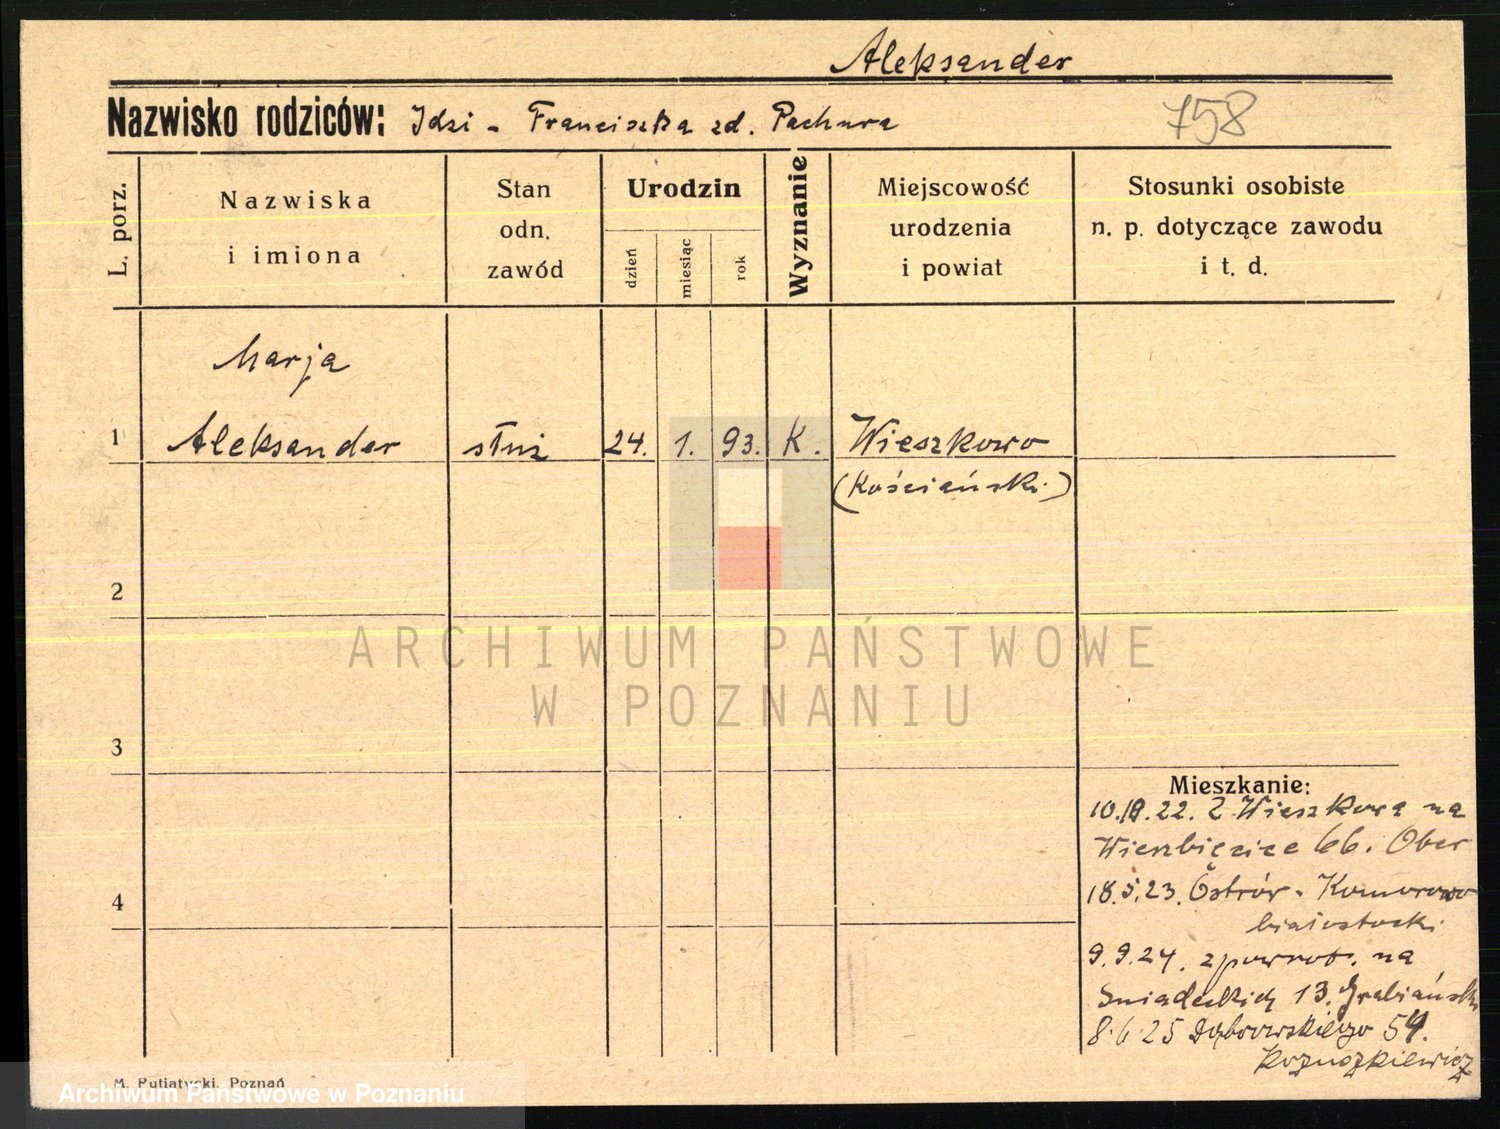 Aleksander
Nazwisko rodziców: Idzi - Franciszka zd. Pachura
758
L. porz.
Nazwiska
i imiona
Stan
odn.
zawód
Urodzin
dzień
miesiąc
rok
Wyznanie
Miejscowość
urodzenia
i powiat
Stosunki osobiste
n. p. dotyczące zawodu
i t. d.
Marja
1 Aleksander służ 24. 1. 93. K. Wieszkowo
(Kościański)
2
ARCHIWUM PAŃSTWOWE
W POZNANIU
3
Mieszkanie:
22. Z Wieszkowa na
Wierzbięcice 66. Ober
4
18.5.23. Ostrów - Komorowo
białostocki
9.9.24. zpowrot. na
Śniadeckich 13. Grabiański
8.6.25 Dąbrowskiego 54.
M. Putiatycki, Poznań
Archiwum Państwowe w Poznaniu